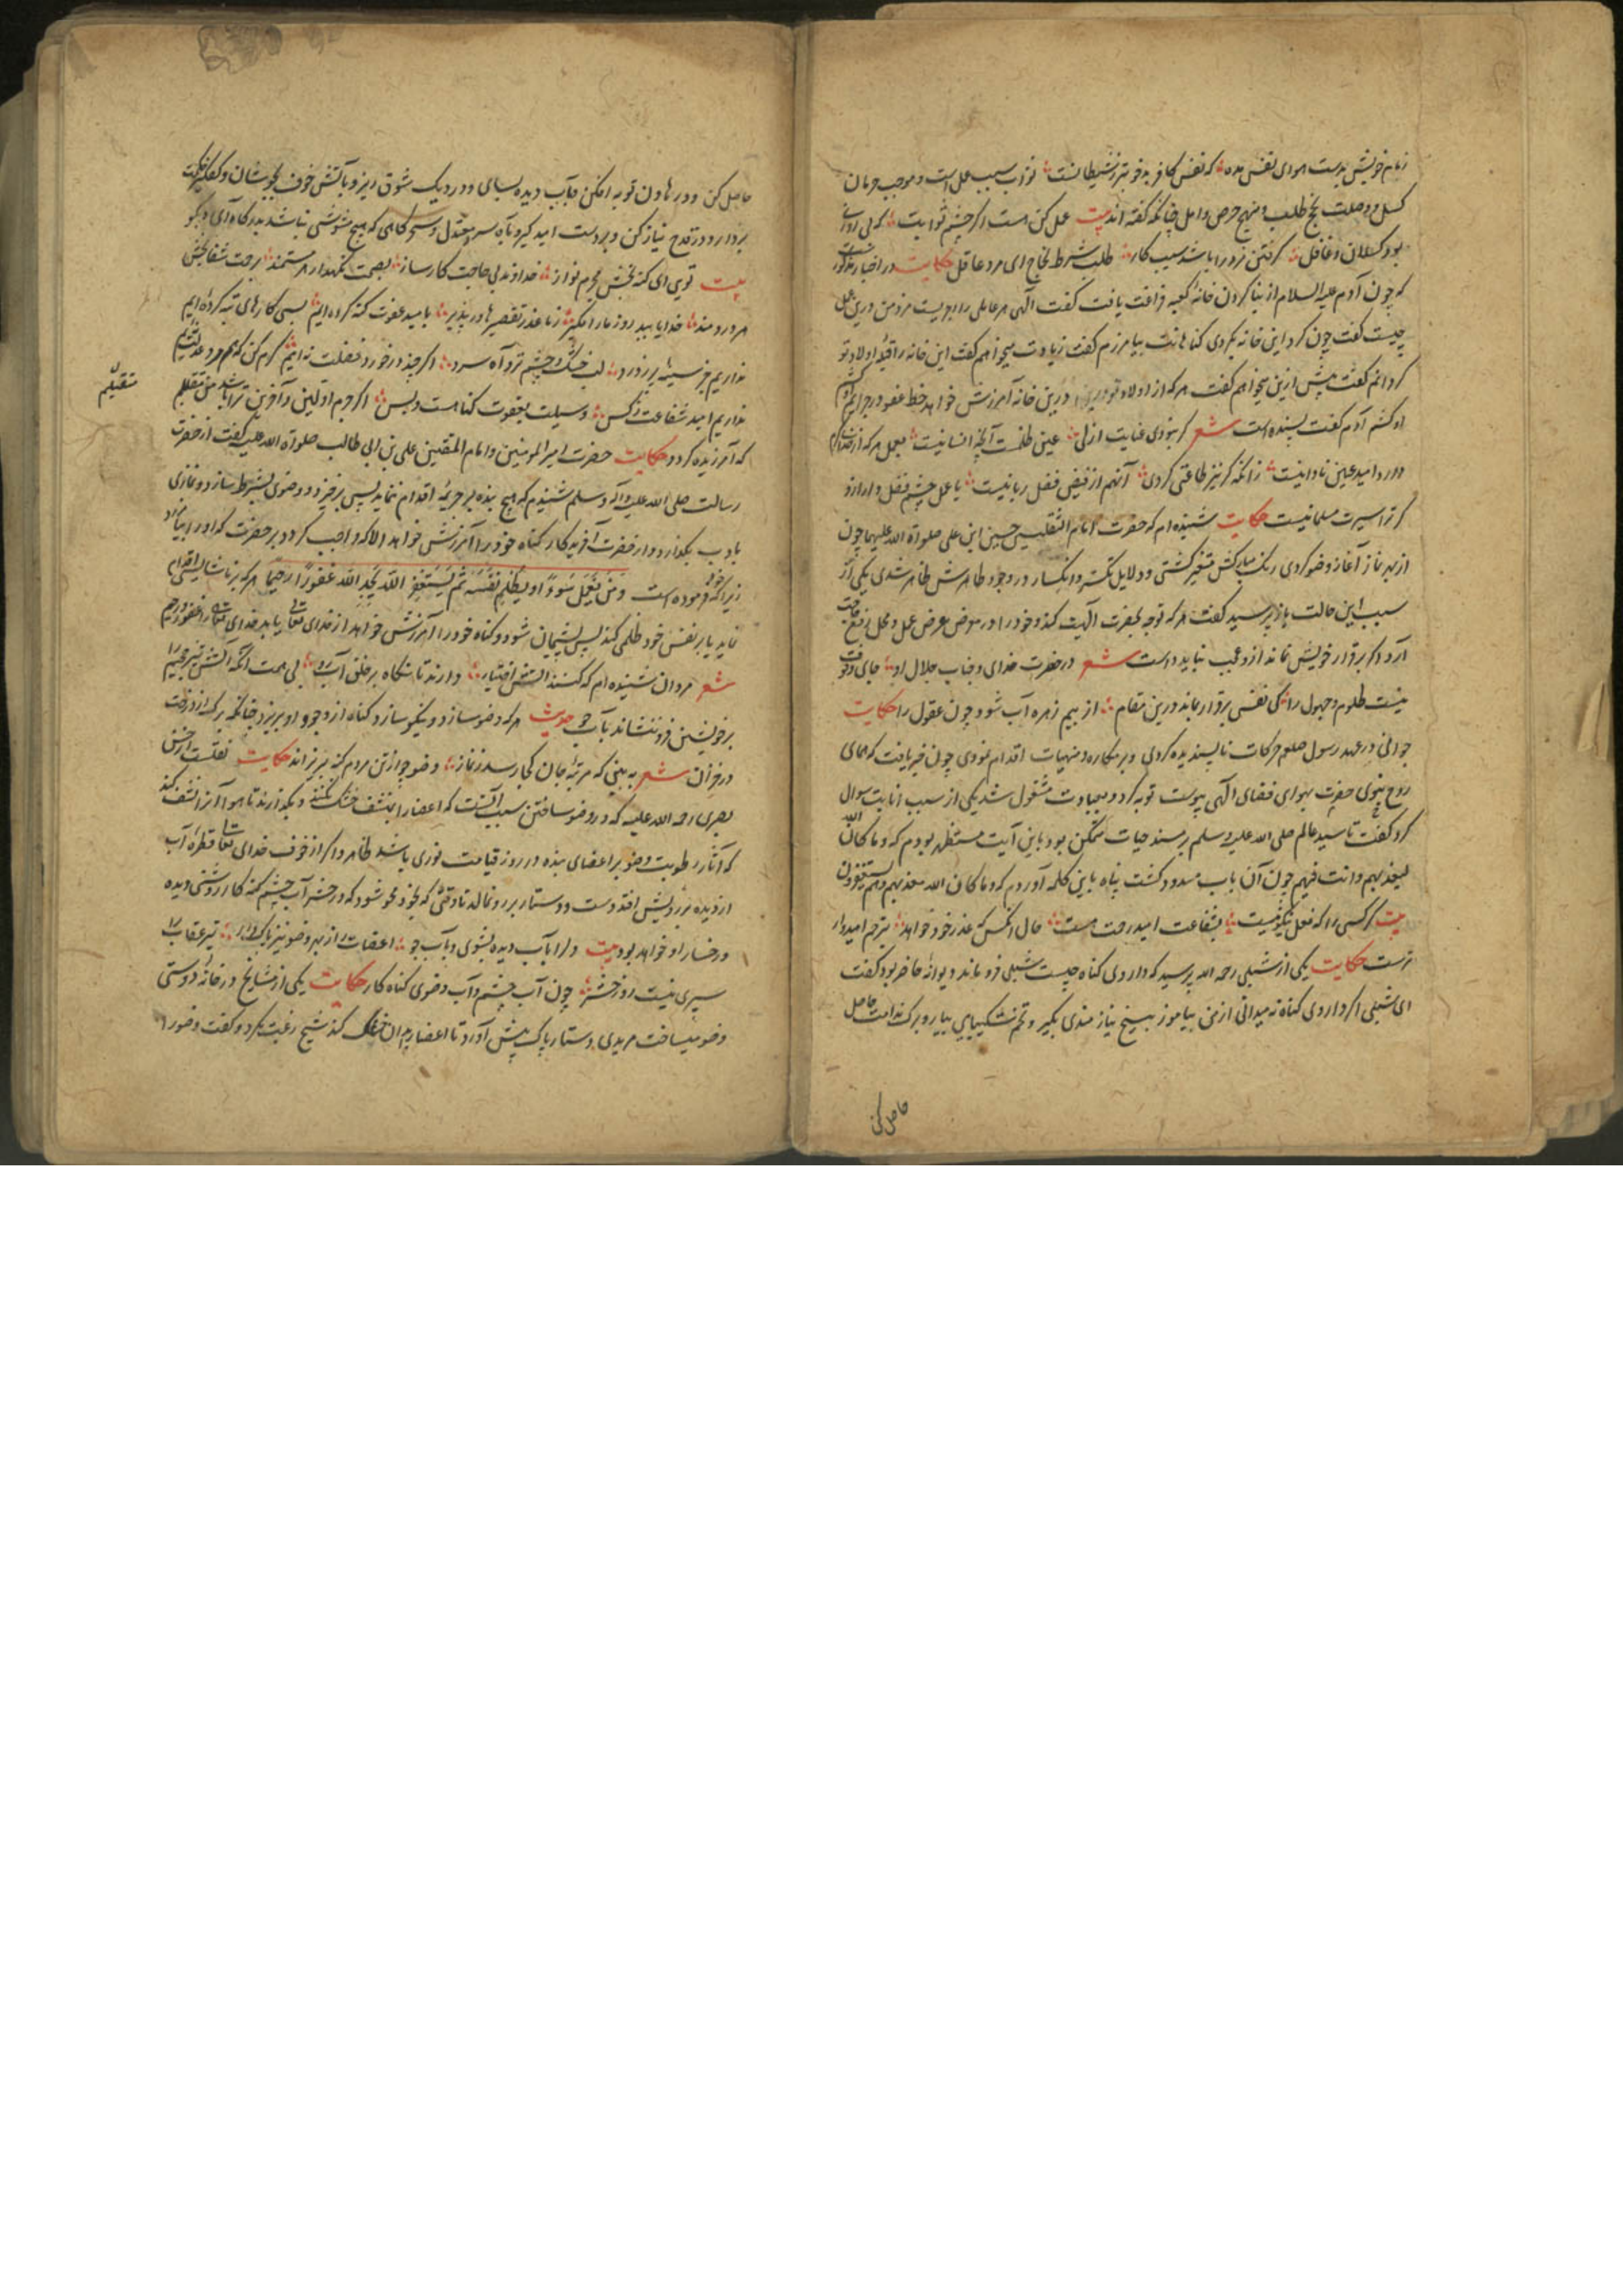 زمام خویش بدست هوای نفس مده که نفس کافر بدخو بتر ز شیطانست ثواب سبب عمل است و موجب حرمان
کسل و وصلت نجح طلب و منهج حرص و امل چنانکه گفته اند بیت عمل کن هست اگر چشم ثوابت که بی روزی
بود کسلان و غافل گرفتن زور را باشد سبب کار طلب شرط نجاح ای مرد عاقل حکایت در اخبار مذکور
که چون آدم علیه السلام از بنا کردن خانه کعبه فراغت یافت گفت الهی هر عاملی را اجریست مزد من درین عمل
چیست گفت چون گرد این خانه بگردی گناهانت بیامرزم گفت زیادت میخواهم گفت این خانه را قبله اولاد تو
گردانم گفت بیش ازین میخواهم گفت هر که از اولاد تو درین خانه آمرزش خواهد خط عفو در جرایم
او کشم آدم گفت بسنده است شعر گر نبودی عنایت ازلی عین ظلمت آنچه انسانیت بعمل هر که از خدای
دارد امید عین نادانیست زانکه گر نیز طاعتی کردی آنهم از فیض فضل ربانیست با عمل چشم فضل دار ازو
گر ترا سیرت مسلمانیست حکایت شنیده ام که حضرت امام الثقلین حسین ابن علی صلوة الله علیهما چون
از بهر نماز آغاز وضو کردی رنگ مبارکش متغیر گشتی و دلایل شکستگی و انکسار در وجود طاهرش ظاهر شدی یکی از
سبب این حالت باز پرسید گفت هر که توجه بحضرت الهیت کند و خود را در معرض عرض عمل و محل رفع حاجت
آرد اگر برقرار خویش نماند ازو عجب نباید داشت شعر در حضرت خدای و جناب جلال او جای وقوف
نیست ظلوم و جهول را کی نفس برقرار بماند درین مقام از بیم زهره آب شود چون عقول را حکایت
جوانی در عهد رسول صلعم حرکات ناپسندیده کردی و بر مکاره و منهیات اقدام نمودی چون خبر یافت که همای
روح نبوی حضرت بهوای فضای الهی پیوست توبه کرد و بعبادت مشغول شد یکی از سبب انابت سوال
کرد گفت تا سید عالم صلی الله علیه وسلم بر مسند حیات متمکن بود باین آیت مستظهر بودم که و ما کان الله
لیعذبهم و انت فیهم چون آن باب مسدود گشت پناه باین کلمه آوردم که و ما کان الله معذبهم و هم یستغفرون
بیت گر کسی را که فعل نیکو نیست بشفاعت امید رحمت هست حال آنکس که عذر خود خواهد بترحم امیدوار
ترست حکایت یکی از شبلی رحمه الله پرسید که داروی گناه چیست شبلی فرو ماند دیوانه حاضر بود گفت
ای شبلی اگر داروی گناه نه میدانی از من بیاموز بیخ نیازمندی بگیر و تخم شکیبایی بیار و برگ ندامت حاصل
حاصل کن
حاصل کن و در هاون توبه افکن و بآب دیده بسای و در دیگ شوق ریز و باتش خوف بجوشان و کفگیر
بردار و در قدح نیاز کن و بر دست امید گیر و بآه سرد معتدل و سحرگاهی که هیچ مشوشی نباشد بدرگاه آی و بگو
بیت توی ای گنه بخش مجرم نواز خداوند بی حاجت کارساز بعصمت نگهدار هر مستمند برحمت شفا بخش
هر دردمند خدایا ببد روز ما را مگیر ز ما عذر تقصیرها در پذیر بامید عفوت گنه کرده ایم بسی کارهای تبه کرده ایم
نداریم جز سینه پر ز درد لب خشک و چشم تر و آه سرد اگر چند در خورد فضلت نه ایم کرم کن که هم
نداریم امید شفاعت ز کس وسیلت بعفوت گناهست و بس اگر جرم اولین و آخرین ترا باشد من
متقبلم
که آمرزیده گردد حکایت حضرت امیر المومنین و امام المتقین علی بن ابی طالب صلوة الله علیه گفت از حضرت
رسالت صلی الله علیه وآله وسلم شنیدم که هیچ بنده بر جریمه اقدام ننماید پس برخیزد و وضوی بشرط سازد و نمازی
بادب بگذارد و از حضرت آفریدگار گناه خود را آمرزش خواهد الا که واجب گردد بر حضرت که او را بیامرزد
زیرا که خود فرموده است وَمَنْ یَعْمَلْ سُوءًا اَوْ یَظْلِمْ نَفْسَهُ ثُمَّ یَسْتَغْفِرِ اللهَ یَجِدِ اللهَ غَفُورًا رَحِیمًا هر که بر ناشایست اقدام
نماید یا بر نفس خود ظلمی کند پس پشیمان شود و گناه خود را آمرزش خواهد از خدای تعالی بیابد خدای تعالی را غفور و رحیم
شعر مردان شنیده ام که کنند آتش اختیار دارند تا نگاه بر خلق آب رو بی همت آنکه آتش
بر خویشتن فرو ننشاند بآب جو حدیث هر که وضو سازد و نیکو سازد گناه از وجود او بریزد چنانکه برگ از درخت
در خزان شعر به بینی که مرتبه جان کجا رسد ز نماز وضو چو از تن مردم گنه بریزاند حکایت نقلست از حسن
بصری رحمه الله علیه که در وضو ساختن سبب آنست که اعضا را بنشف خشک نکنند و بگذارند تا هوا آنرا نشف کند
که آثار رطوبت وضو بر اعضای بنده در روز قیامت نوری باشد ظاهر و اگر از خوف خدای تعالی قطره آب
از دیده بر رویش افتد دست و دستار بر رو نمالد تا وقتی که بخود محو شود که در حشر آب چشم گنه کار روشنی دیده
و رخسار او خواهد بود بیت دل را بآب دیده بشوی و بآب جو اعضات از بهر وضو نیز پاک دار تیر عقاب را
سپری نیست روز حشر چون آب چشم و آب وضوی گناه کار حکایت یکی از مشایخ در خانه دوستی
وضو میساخت مریدی دستار پاک پیش آورد تا اعضا بدان خشک کند شیخ رغبت نکرد و گفت وضو را